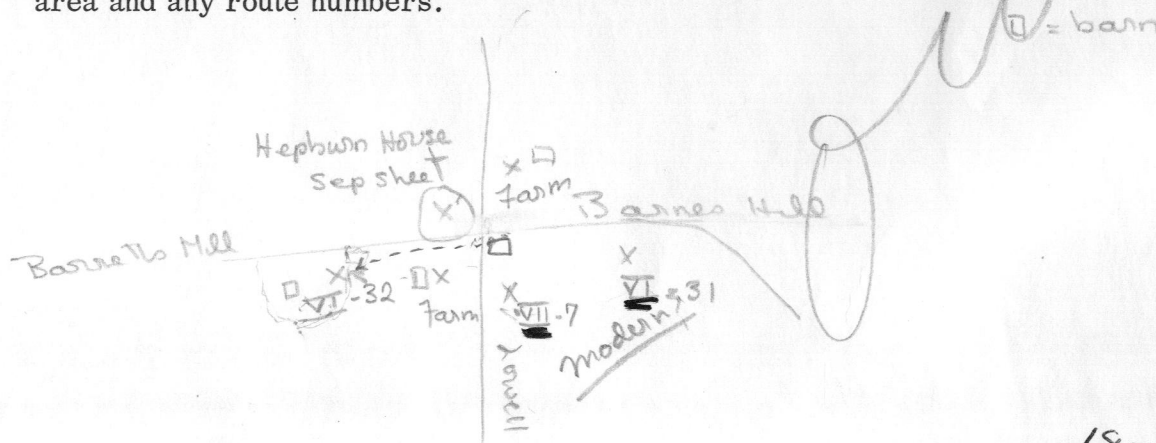 area and any route numbers.
= barn
Hepburn House
Sep sheet
Farm
Barnes Hill
Barretts Mill
VI-32
Farm
VII-7
VI-31
modern
Lowell